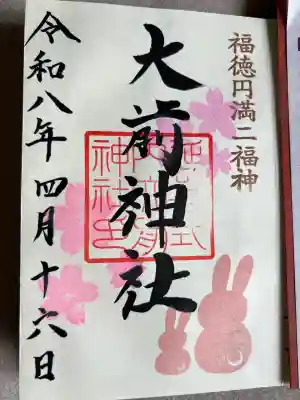 福徳円満二福神
大前神社
令和八年四月十六日